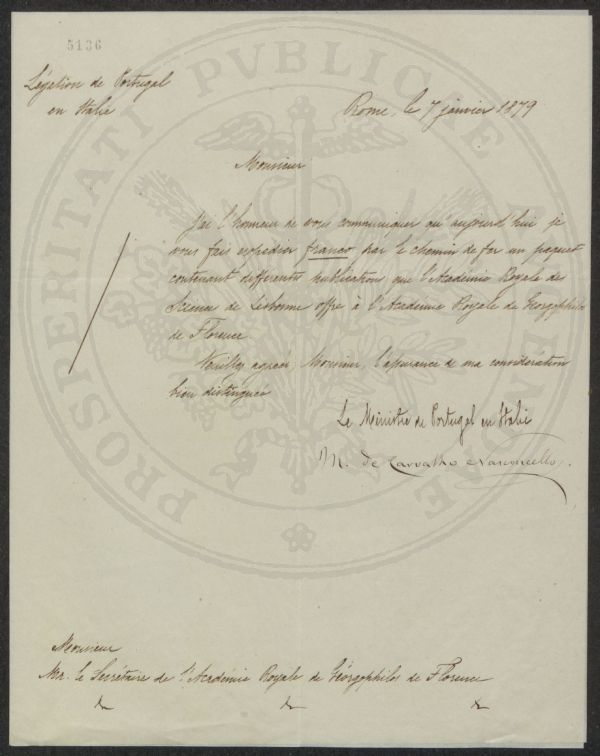 5136
Légation de Portugal
en Italie
Rome, le 7 janvier 1879
Monsieur
J'ai l'honneur de vous communiquer qu'aujourd'hui je
vous fais expédier franco par le chemin de fer un paquet
contenant différentes publication que l'Académie Royale des
Science de Lisbonne offre à l'Académie Royale de Géorgophilos
de Florence
Veuillez agréer, Monsieur, l'assurance de ma considération
bien distinguée
Le Ministre de Portugal en Italie
M. de Carvalho e Vasconcellos.
Monsieur
Mr. le Secrétaire de l'Académie Royale de Géorgophilos de Florence
PROSPERITATI PUBLICAE AUGENDAE